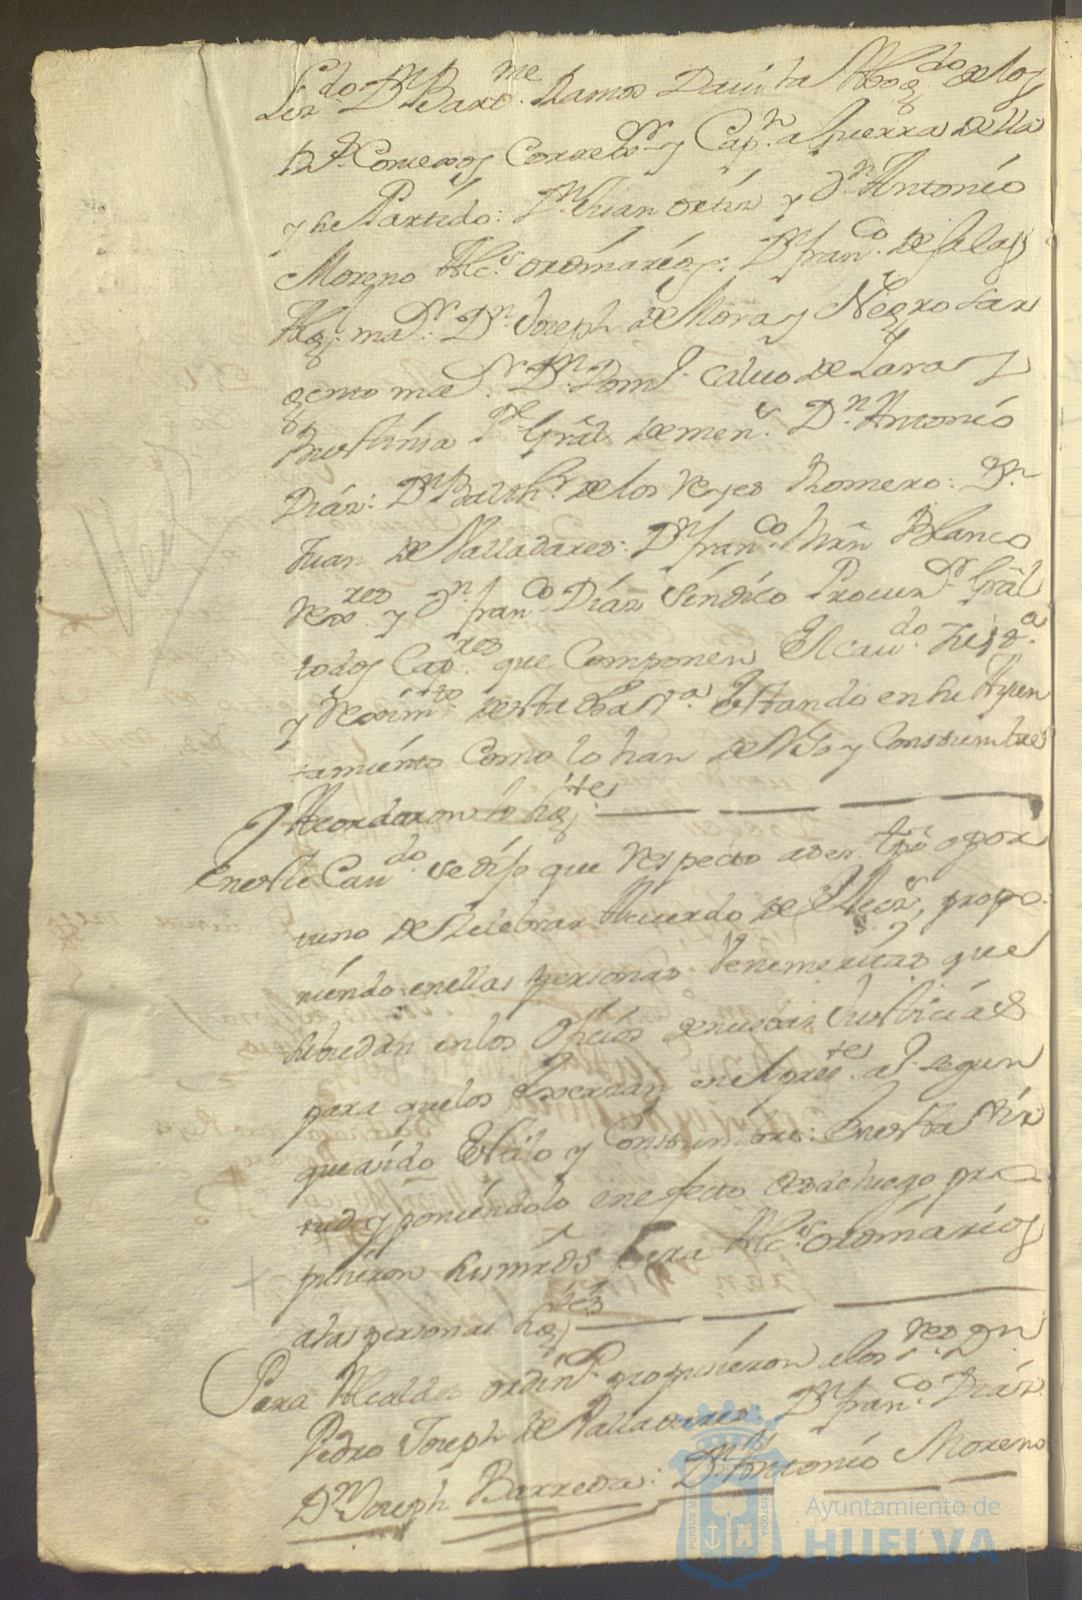 Lizdo. Dn Barme. Ramos Davila Abogdo. de los
Rs. Consexos Correxor. y Capn. a Guerra de ella
y su Partido: Dn. Juan Ortiz y Dn. Antonio
Moreno Alces. ordinarios: Dn. Franco. de Salas
Algl. mar. Dn. Joseph de Mora y Negro Sar
gento mar. Dn. Domo. Calvo de Lara y
The. Gral. de Dn. Antonio
Diaz: Dn. Balthr. de los Reyes Romero: Dn.
Juan de Valladares: Dn. Franco. Mrn. Blanco
Rexres. y Dn. Franco. Diaz Sindico Procurr. Gral
todos Capres. que componen el cavdo. Justa.
y Reximto. de esta dha Va. Estando en su Ayun
tamiento como lo han de Uso y Constumbre
Acordaron lo sigtes.
En este Cavdo. se dijo que respecto a ser tpo opor
tuno de Selebrar Acuerdo de Elecs. propo
niendo en ellas personas venemeritas que
subsedan en los oficios de nuebas Justicias
para que los exerzan en el prete. as. segun
que a sido Estilo y Constumbre: En esta Vir
tud y poniendolo en efecto desde luego pro
pusieron sus mrds para Alces. ordinarios
a las personas sigtes
Para Alcaldes ordins. propusieron a los sres. Dn
Pedro Joseph de Valladares: Dn. Franco. Diaz
Dn. Joseph Barreda: Dn. Antonio Moreno
Ayuntamiento de
HUELVA